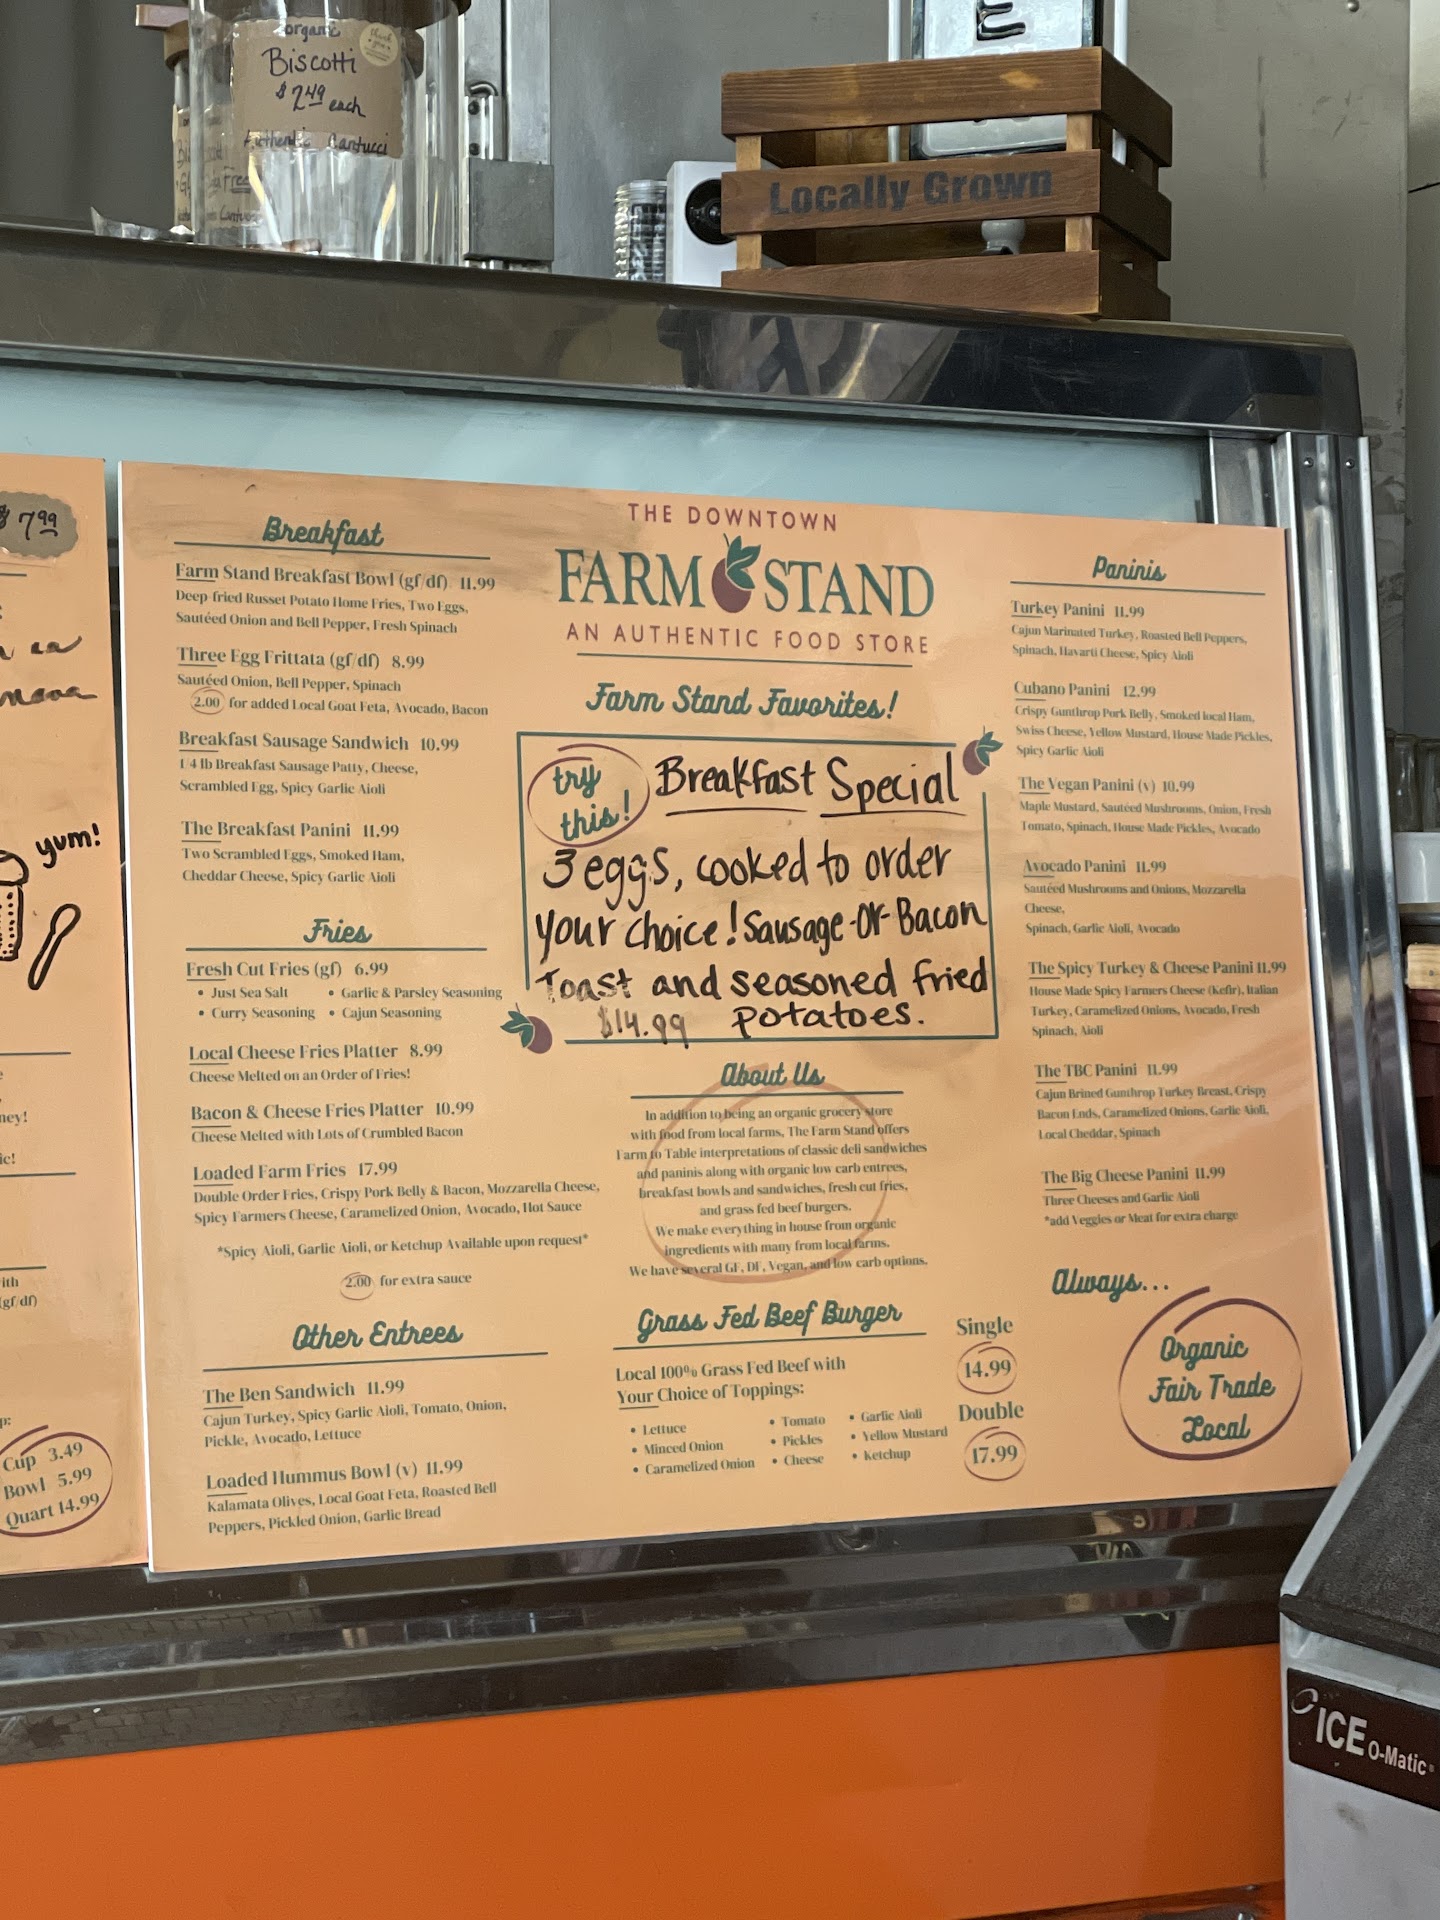 organic
Biscotti
$2.49 each
Authentic Cantucci
Free
Locally Grown
$7.99
yum!
Cup 3.49
Bowl 5.99
Quart 14.99
Breakfast
Farm Stand Breakfast Bowl (gf/df) 11.99
Deep fried Russet Potato Home Fries, Two Eggs,
Sautéed Onion and Bell Pepper, Fresh Spinach
Three Egg Frittata (gf/df) 8.99
Sautéed Onion, Bell Pepper, Spinach
2.00 for added Local Goat Feta, Avocado, Bacon
Breakfast Sausage Sandwich 10.99
1/4 lb Breakfast Sausage Patty, Cheese,
Scrambled Egg, Spicy Garlic Aioli
The Breakfast Panini 11.99
Two Scrambled Eggs, Smoked Ham,
Cheddar Cheese, Spicy Garlic Aioli
Fries
Fresh Cut Fries (gf) 6.99
• Just Sea Salt • Garlic & Parsley Seasoning
• Curry Seasoning • Cajun Seasoning
Local Cheese Fries Platter 8.99
Cheese Melted on an Order of Fries!
Bacon & Cheese Fries Platter 10.99
Cheese Melted with Lots of Crumbled Bacon
Loaded Farm Fries 17.99
Double Order Fries, Crispy Pork Belly & Bacon, Mozzarella Cheese,
Spicy Farmers Cheese, Caramelized Onion, Avocado, Hot Sauce
*Spicy Aioli, Garlic Aioli, or Ketchup Available upon request*
2.00 for extra sauce
Other Entrees
The Ben Sandwich 11.99
Cajun Turkey, Spicy Garlic Aioli, Tomato, Onion,
Pickle, Avocado, Lettuce
Loaded Hummus Bowl (v) 11.99
Kalamata Olives, Local Goat Feta, Roasted Bell
Peppers, Pickled Onion, Garlic Bread
THE DOWNTOWN
FARM STAND
AN AUTHENTIC FOOD STORE
Farm Stand Favorites!
try this! Breakfast Special
3 eggs, cooked to order
your choice! Sausage -or- Bacon
Toast and seasoned fried
$14.99 potatoes.
About Us
In addition to being an organic grocery store
with food from local farms, The Farm Stand offers
Farm to Table interpretations of classic deli sandwiches
and paninis along with organic low carb entrees,
breakfast bowls and sandwiches, fresh cut fries,
and grass fed beef burgers.
We make everything in house from organic
ingredients with many from local farms.
We have several GF, DF, Vegan, and low carb options.
Grass Fed Beef Burger
Local 100% Grass Fed Beef with
Your Choice of Toppings:
• Lettuce • Tomato • Garlic Aioli
• Minced Onion • Pickles • Yellow Mustard
• Caramelized Onion • Cheese • Ketchup
Single
14.99
Double
17.99
Paninis
Turkey Panini 11.99
Cajun Marinated Turkey, Roasted Bell Peppers,
Spinach, Havarti Cheese, Spicy Aioli
Cubano Panini 12.99
Crispy Gunthrop Pork Belly, Smoked local Ham,
Swiss Cheese, Yellow Mustard, House Made Pickles,
Spicy Garlic Aioli
The Vegan Panini (v) 10.99
Maple Mustard, Sautéed Mushrooms, Onion, Fresh
Tomato, Spinach, House Made Pickles, Avocado
Avocado Panini 11.99
Sautéed Mushrooms and Onions, Mozzarella
Cheese,
Spinach, Garlic Aioli, Avocado
The Spicy Turkey & Cheese Panini 11.99
House Made Spicy Farmers Cheese (Kefir), Italian
Turkey, Caramelized Onions, Avocado, Fresh
Spinach, Aioli
The TBC Panini 11.99
Cajun Brined Gunthrop Turkey Breast, Crispy
Bacon Ends, Caramelized Onions, Garlic Aioli,
Local Cheddar, Spinach
The Big Cheese Panini 11.99
Three Cheeses and Garlic Aioli
*add Veggies or Meat for extra charge
Always...
Organic
Fair Trade
Local
ICE O-Matic